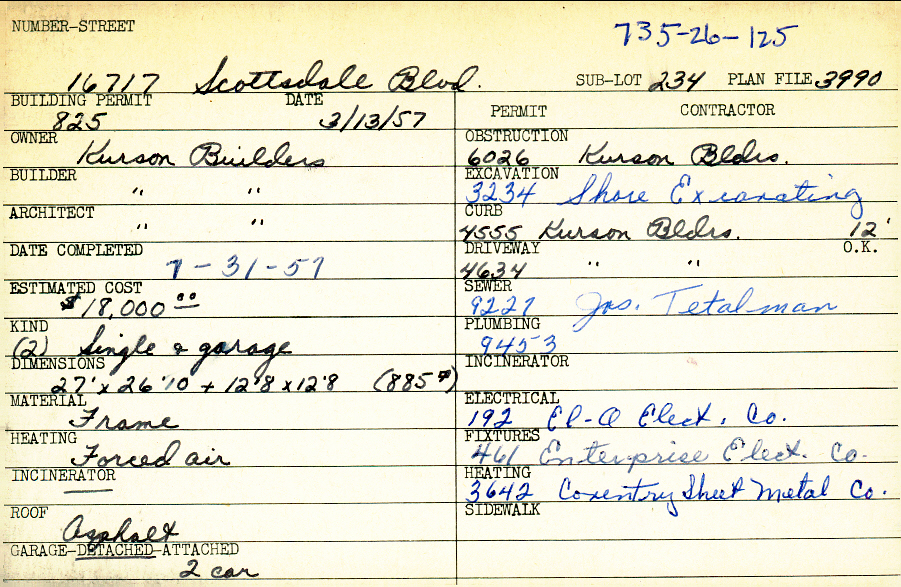 NUMBER-STREET
735-26-125
16717 Scottsdale Blvd. SUB-LOT 234 PLAN FILE 3990
BUILDING PERMIT DATE
825 3/13/57
PERMIT CONTRACTOR
OWNER
Kurson Builders
OBSTRUCTION
6026 Kurson Bldrs.
BUILDER
" "
EXCAVATION
3234 Shore Excavating
ARCHITECT
" "
CURB
4555 Kurson Bldrs. 12'
DATE COMPLETED
7-31-57
DRIVEWAY O.K.
4634 " "
ESTIMATED COST
$18,000 00
SEWER
9227 Jos. Tetalman
KIND
(2) Single & garage
PLUMBING
9453
DIMENSIONS
27' x 26'10 + 12'8 x 12'8 (885#)
INCINERATOR
MATERIAL
Frame
ELECTRICAL
192 El-O Elect. Co.
HEATING
Forced air
FIXTURES
461 Enterprise Elect. Co.
INCINERATOR
HEATING
3642 Coventry Sheet Metal Co.
ROOF
Asphalt
SIDEWALK
GARAGE-DETACHED-ATTACHED
2 car